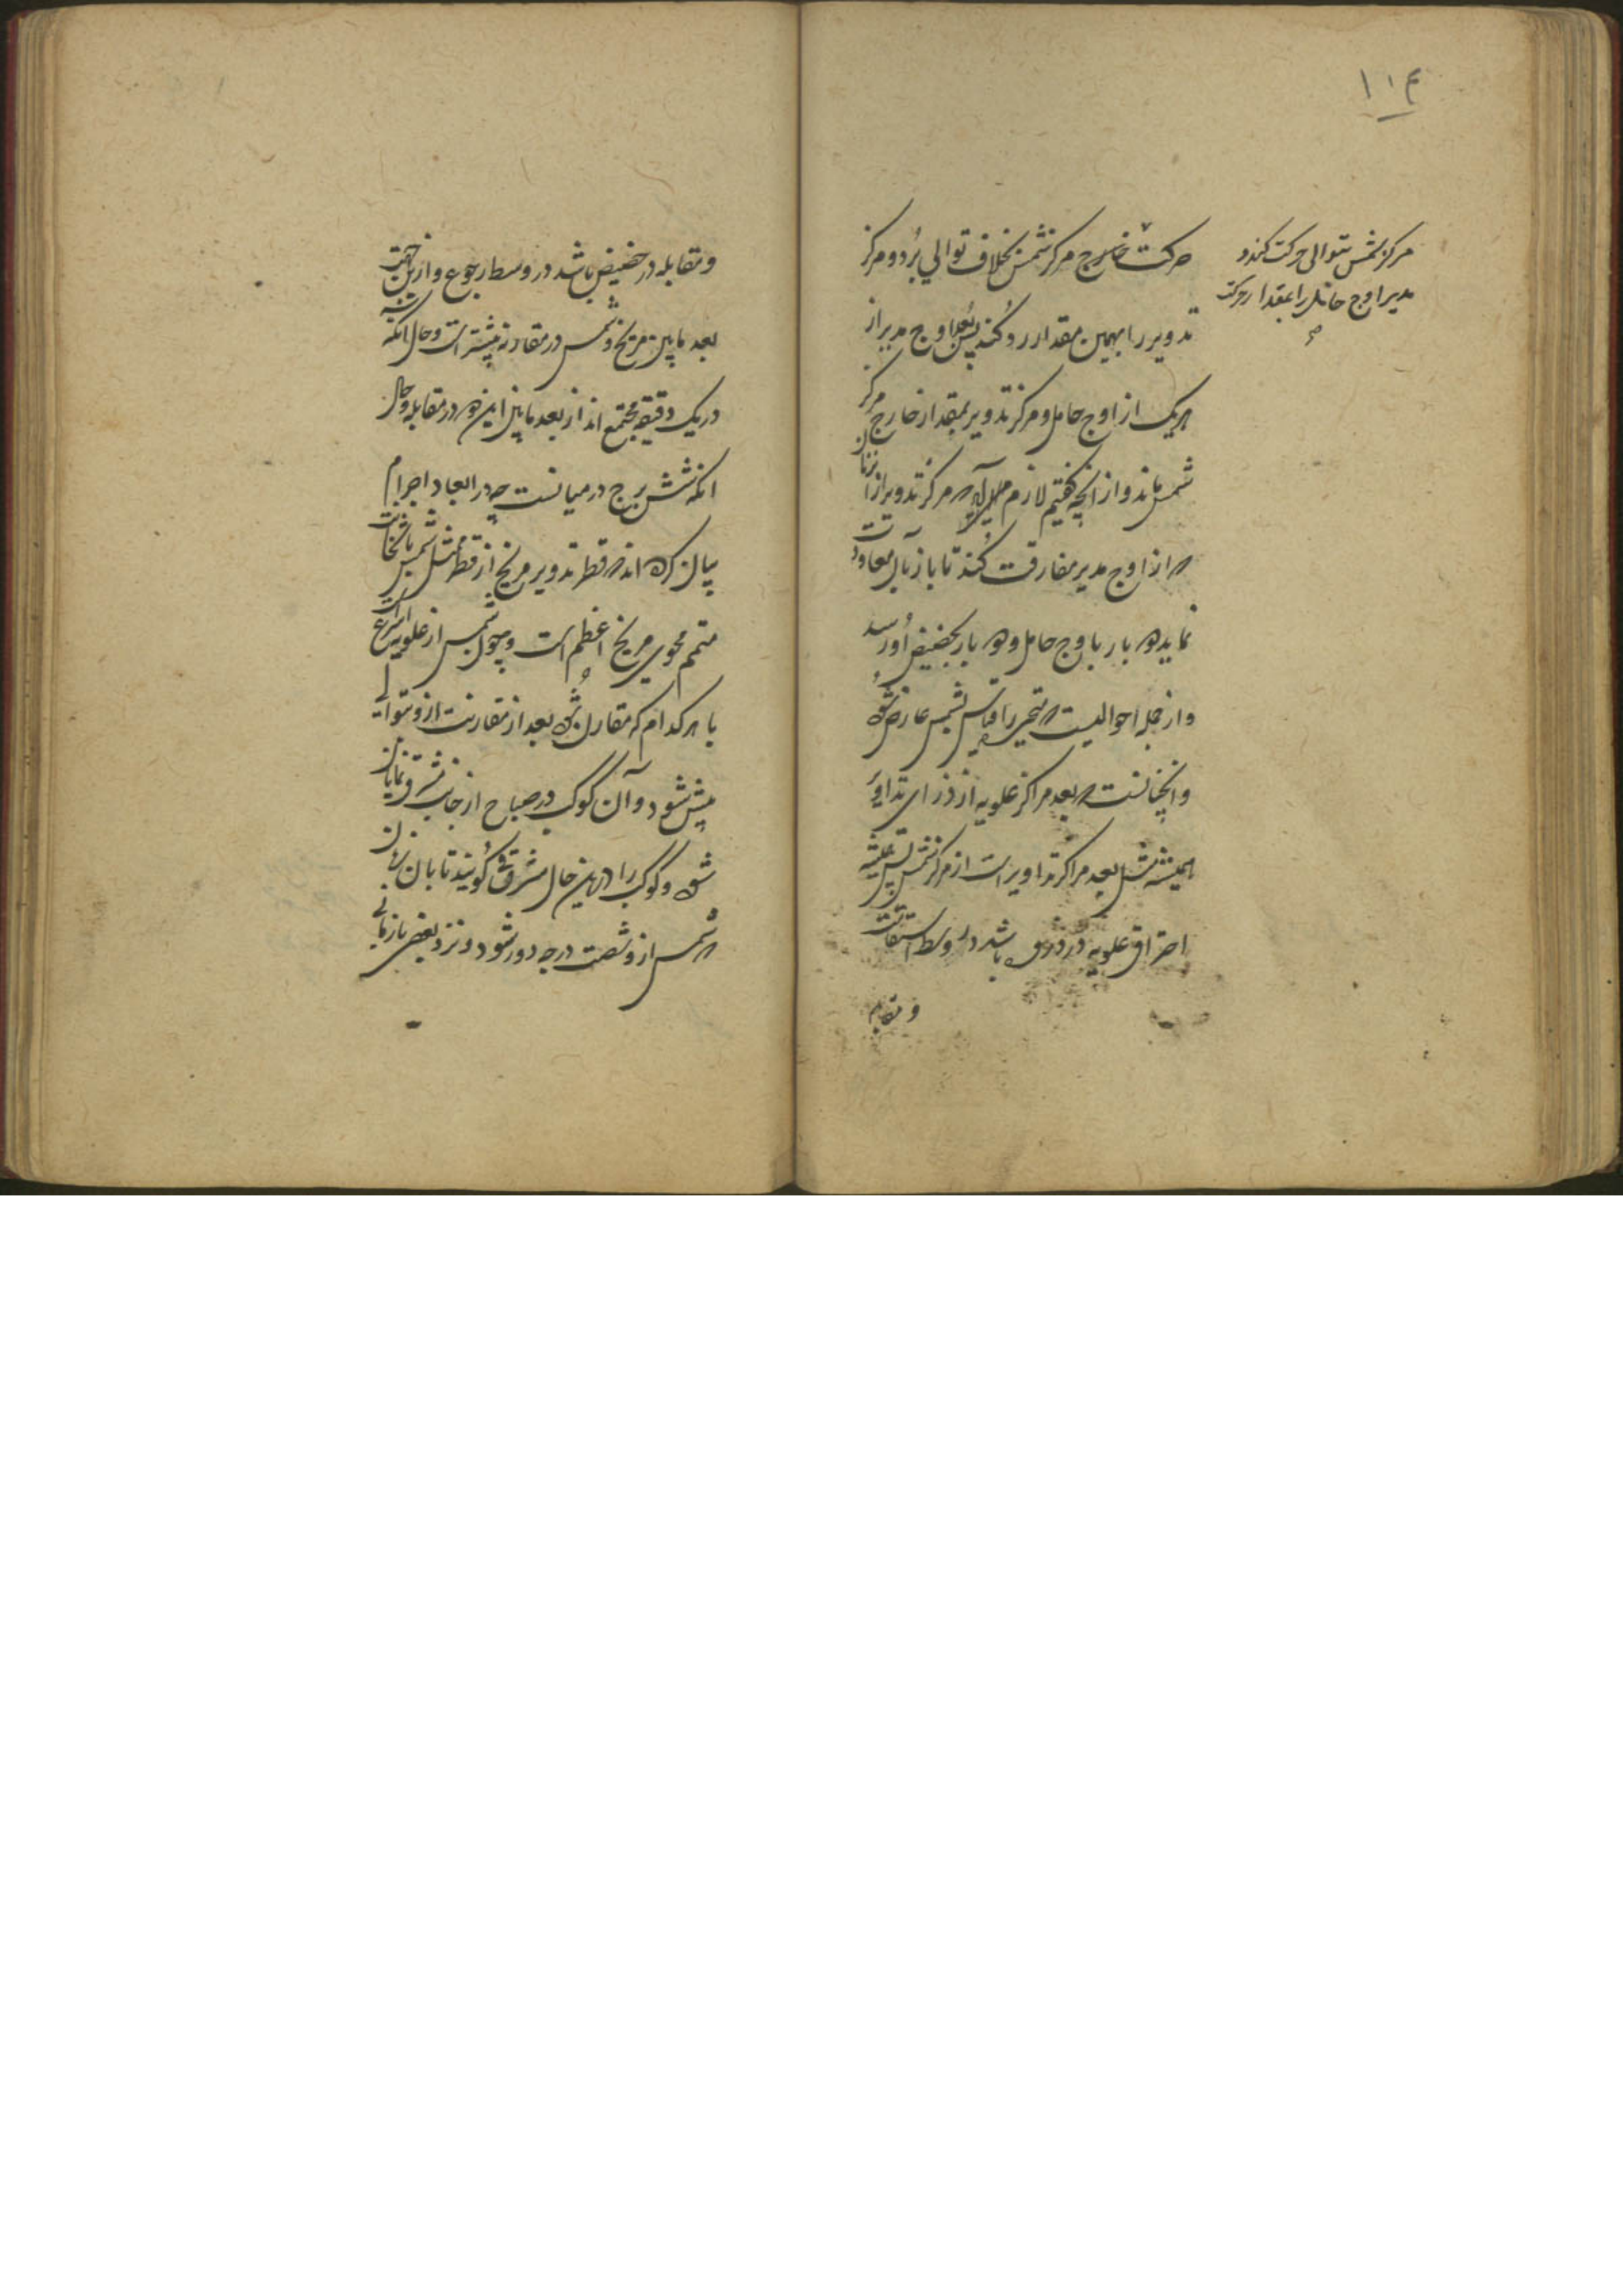 ۱۱۴
مرکز شمس بتوالی حرکت کند و
مدیر اوج حامل را بمقدار حرکت
صح
حرکت خارج مرکز شمس بخلاف توالی برد و مرکز
تدویر را بهمین مقدار رد کند پس بعد اوج مدیر از
هر یک از اوج حامل و مرکز تدویر بمقدار خارج مرکز
شمس ماند و از آنچه گفتیم لازم می آید که مرکز تدویر از آن زمان
که از اوج مدیر مفارقت کند تا باز بآن معاودت
نماید دو بار باوج حامل و دو بار بحضیض او رسد
و از جمله احوالیست که متحیره را بقیاس شمس عارض شود
و آنچنانست که بعد مراکز علویه از ذرای تداویر
همیشه مثل بعد مراکز تداویر است از مرکز شمس پس همیشه
احتراق علویه در ذروه باشد در وسط استقامت
و مقابله
و مقابله در حضیض باشد در وسط رجوع و ازین جهت
بعد مابین مریخ و شمس در مقارنه بیشتر است و حال آنکه
در یک دقیقه مجتمع اند از بعد مابین این دو در مقابله و حال
آنکه شش برج در میانست چه در ابعاد اجرام
بیان کرده اند که قطر تدویر مریخ از قطر ممثل شمس با ثخانت
متمم محوی مریخ اعظم است و چون شمس از علویه اسرع است
با هر کدام که مقارن شود بعد از مقارنت ازو بتوالی
پیش شود و آن کوکب در صباح از جانب مشرق نمایان
شود و کوکب را درین حال مشرقی گویند تا بآن زمان
که شمس ازو شصت درجه دور شود و نزد بعضی تا زمانی